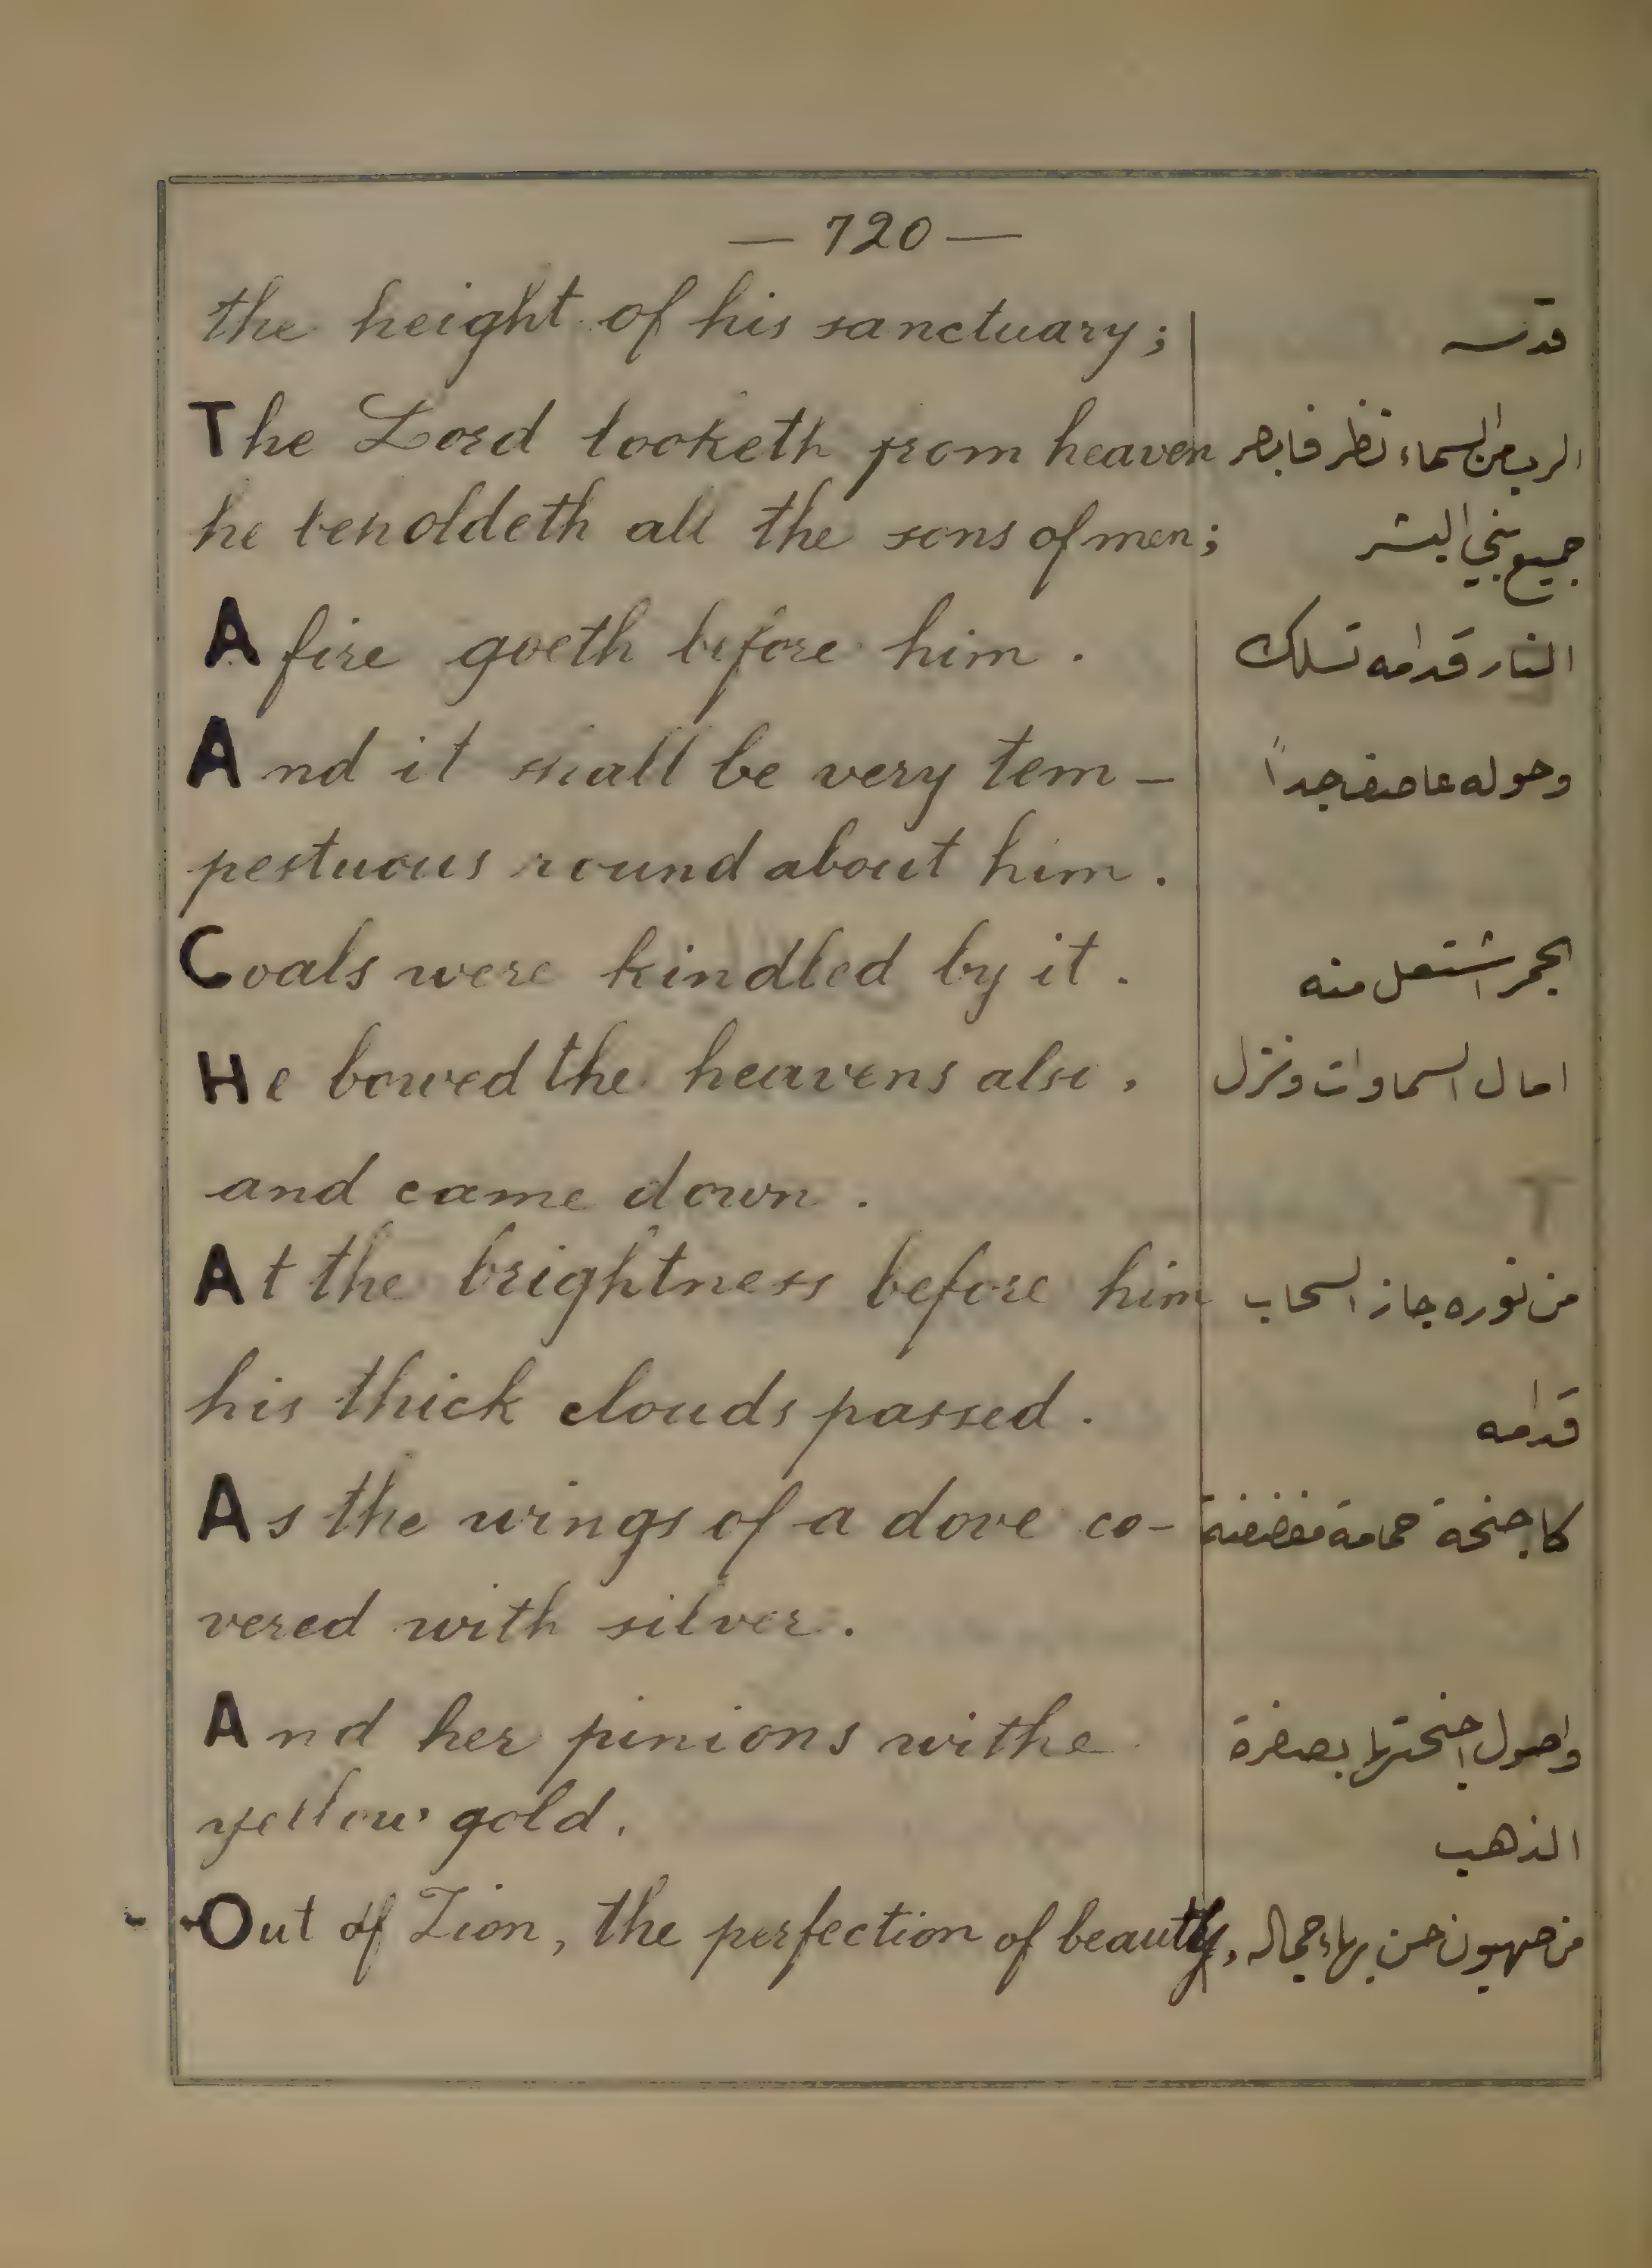 — 720 —
the height of his sanctuary;
قدسه
The Lord looketh from heaven
الرب من السماء نظر فابصر
he beholdeth all the sons of men;
جميع بني البشر
A fire goeth before him.
النار قدامه تسلك
And it shall be very tem-
وحوله عاصف جداً
pestuous round about him.
Coals were kindled by it.
الجمر اشتعل منه
He bowed the heavens also,
امال السماوات ونزل
and came down.
At the brightness before him
من نوره جاز السحاب
his thick clouds passed.
قدامه
As the wings of a dove co-
كاجنحة حمامة مفضضة
vered with silver.
And her pinions withe
واصول اجنحتها بصفرة
yellow gold.
الذهب
Out of Zion, the perfection of beauty,
من صهيون حسن بهاء جماله